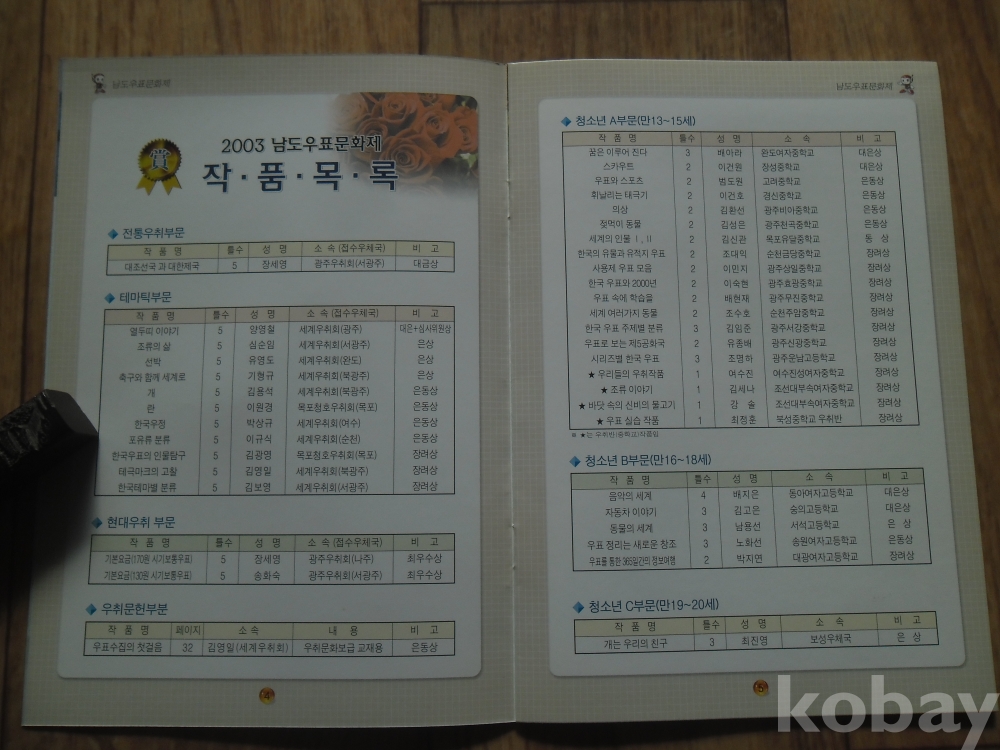 남도우표문화제
2003 남도우표문화제
賞
작·품·목·록
전통우취부문
작 품 명 틀수 성 명 소 속 (접수우체국) 비 고
대조선국 과 대한제국 5 장세영 광주우취회(서광주) 대금상
테마틱부문
작 품 명 틀수 성 명 소 속 (접수우체국) 비 고
열두띠 이야기 5 양영철 세계우취회(광주) 대은+심사위원상
조류의 삶 5 심순임 세계우취회(서광주) 은상
선박 5 유영도 세계우취회(완도) 은상
축구와 함께 세계로 5 기형규 세계우취회(북광주) 은상
개 5 김용석 세계우취회(북광주) 은동상
란 5 이원경 목포청호우취회(목포) 은동상
한국우정 5 박상규 세계우취회(여수) 은동상
포유류 분류 5 이규식 세계우취회(순천) 은동상
한국우표의 인물탐구 5 김광영 목포청호우취회(목포) 장려상
태극마크의 고찰 5 김영일 세계우취회(북광주) 장려상
한국테마별 분류 5 김보영 세계우취회(서광주) 장려상
현대우취 부문
작 품 명 틀수 성 명 소 속 (접수우체국) 비 고
기본요금(170원 시기 보통우표) 5 장세영 광주우취회(나주) 최우수상
기본요금(130원 시기 보통우표) 5 송화숙 광주우취회(서광주) 최우수상
우취문헌부분
작 품 명 페이지 소 속 내 용 비 고
우표수집의 첫걸음 32 김영일(세계우취회) 우취문화보급 교재용 은동상
4
남도우표문화제
청소년 A부문(만13~15세)
작 품 명 틀수 성 명 소 속 비 고
꿈은 이루어 진다 3 배아라 완도여자중학교 대은상
스카우트 2 이건원 장성중학교 대은상
우표와 스포츠 2 범도원 고려중학교 은동상
휘날리는 태극기 2 이건호 경신중학교 은동상
의상 2 김환선 광주비아중학교 은동상
젖먹이 동물 2 김성은 광주천곡중학교 은동상
세계의 인물 Ⅰ,Ⅱ 2 김신관 목포유달중학교 동 상
한국의 유물과 유적지 우표 2 조대익 순천금당중학교 장려상
사용제 우표 모음 2 이민지 광주상일중학교 장려상
한국 우표와 2000년 2 이숙현 광주효광중학교 장려상
우표 속에 학습을 2 배현재 광주무진중학교 장려상
세계 여러가지 동물 2 조수호 순천주암중학교 장려상
한국 우표 주제별 분류 3 김임준 광주서강중학교 장려상
우표로 보는 제5공화국 2 유종배 광주신광중학교 장려상
시리즈별 한국 우표 3 조명하 광주운남고등학교 장려상
★ 우리들의 우취작품 1 여수진 여수진성여자중학교 장려상
★ 조류 이야기 1 김세나 조선대부속여자중학교 장려상
★ 바닷 속의 신비의 물고기 1 강 솔 조선대부속여자중학교 장려상
★ 우표 실습 작품 1 최정훈 북성중학교 우취반 장려상
※ ★는 우취반(중학교)작품임
청소년 B부문(만16~18세)
작 품 명 틀수 성 명 소 속 비 고
음악의 세계 4 배지은 동아여자고등학교 대은상
자동차 이야기 3 김고은 숭의고등학교 대은상
동물의 세계 3 남용선 서석고등학교 은 상
우표 정리는 새로운 창조 3 노화선 송원여자고등학교 은동상
우표를 통한 365일간의 정보여행 2 박지면 대광여자고등학교 장려상
청소년 C부문(만19~20세)
작 품 명 틀수 성 명 소 속 비 고
개는 우리의 친구 3 최진영 보성우체국 은 상
5
kobay